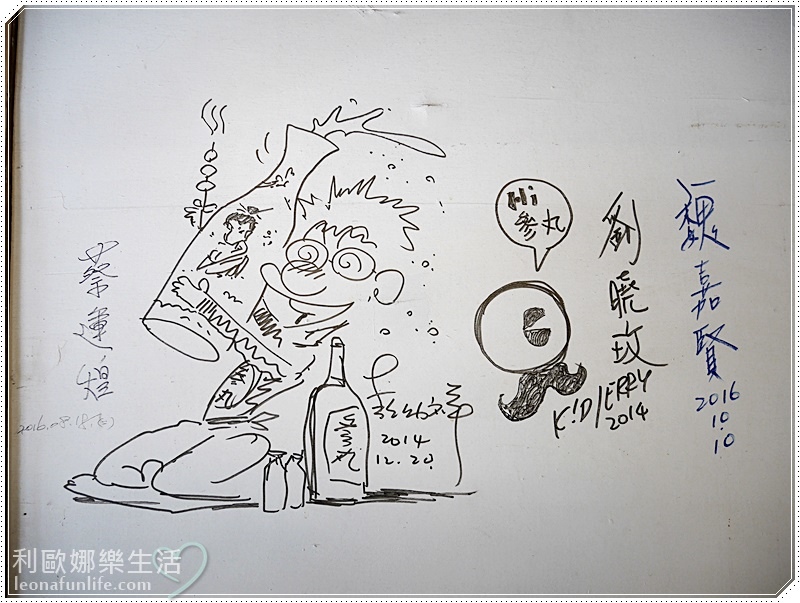 蔡運煌
2016.08.18.
參丸
參丸
2014
12.20.
Hi
參丸
劉曉玫
K!D/ERRY
2014
魏嘉賢
2016
10.
10
利歐娜樂生活
leonafunlife.com